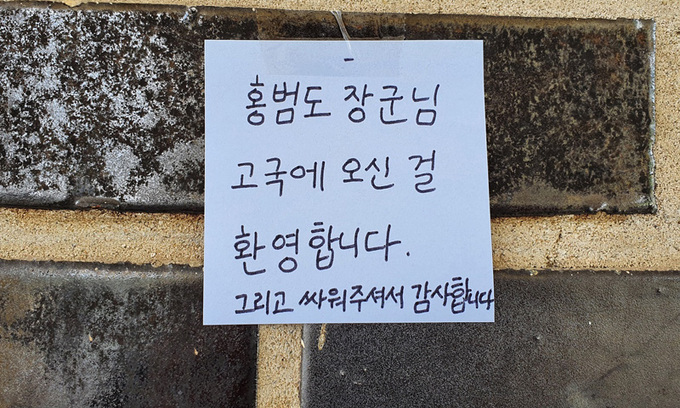 홍범도 장군님
고국에 오신 걸
환영합니다.
그리고 싸워주셔서 감사합니다